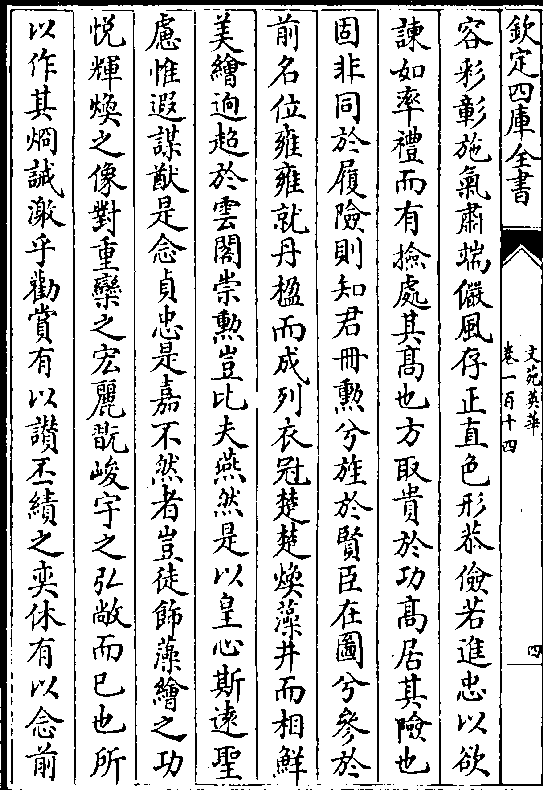 欽定四庫全書
文苑英華
卷一百十四
四
容彩彰施氣肅端儼風存正直色形恭儉若進忠以欲
諫如率禮而有撿處其髙也方取貴於功髙居其險也
固非同於履險則知君冊勲兮旌於賢臣在圖兮參於
前名位雍雍就丹楹而成列衣冠楚楚煥藻井而相鮮
美繪逈超於雲閣崇勲豈比夫燕然是以皇心斯逺聖
慮惟遐謀猷是念貞忠是嘉不然者豈徒飾藻繪之功
悦輝煥之像對重欒之宏麗翫峻宇之弘敞而已也所
以作其烱誠激乎勸賞有以讃丕績之奕休有以念前